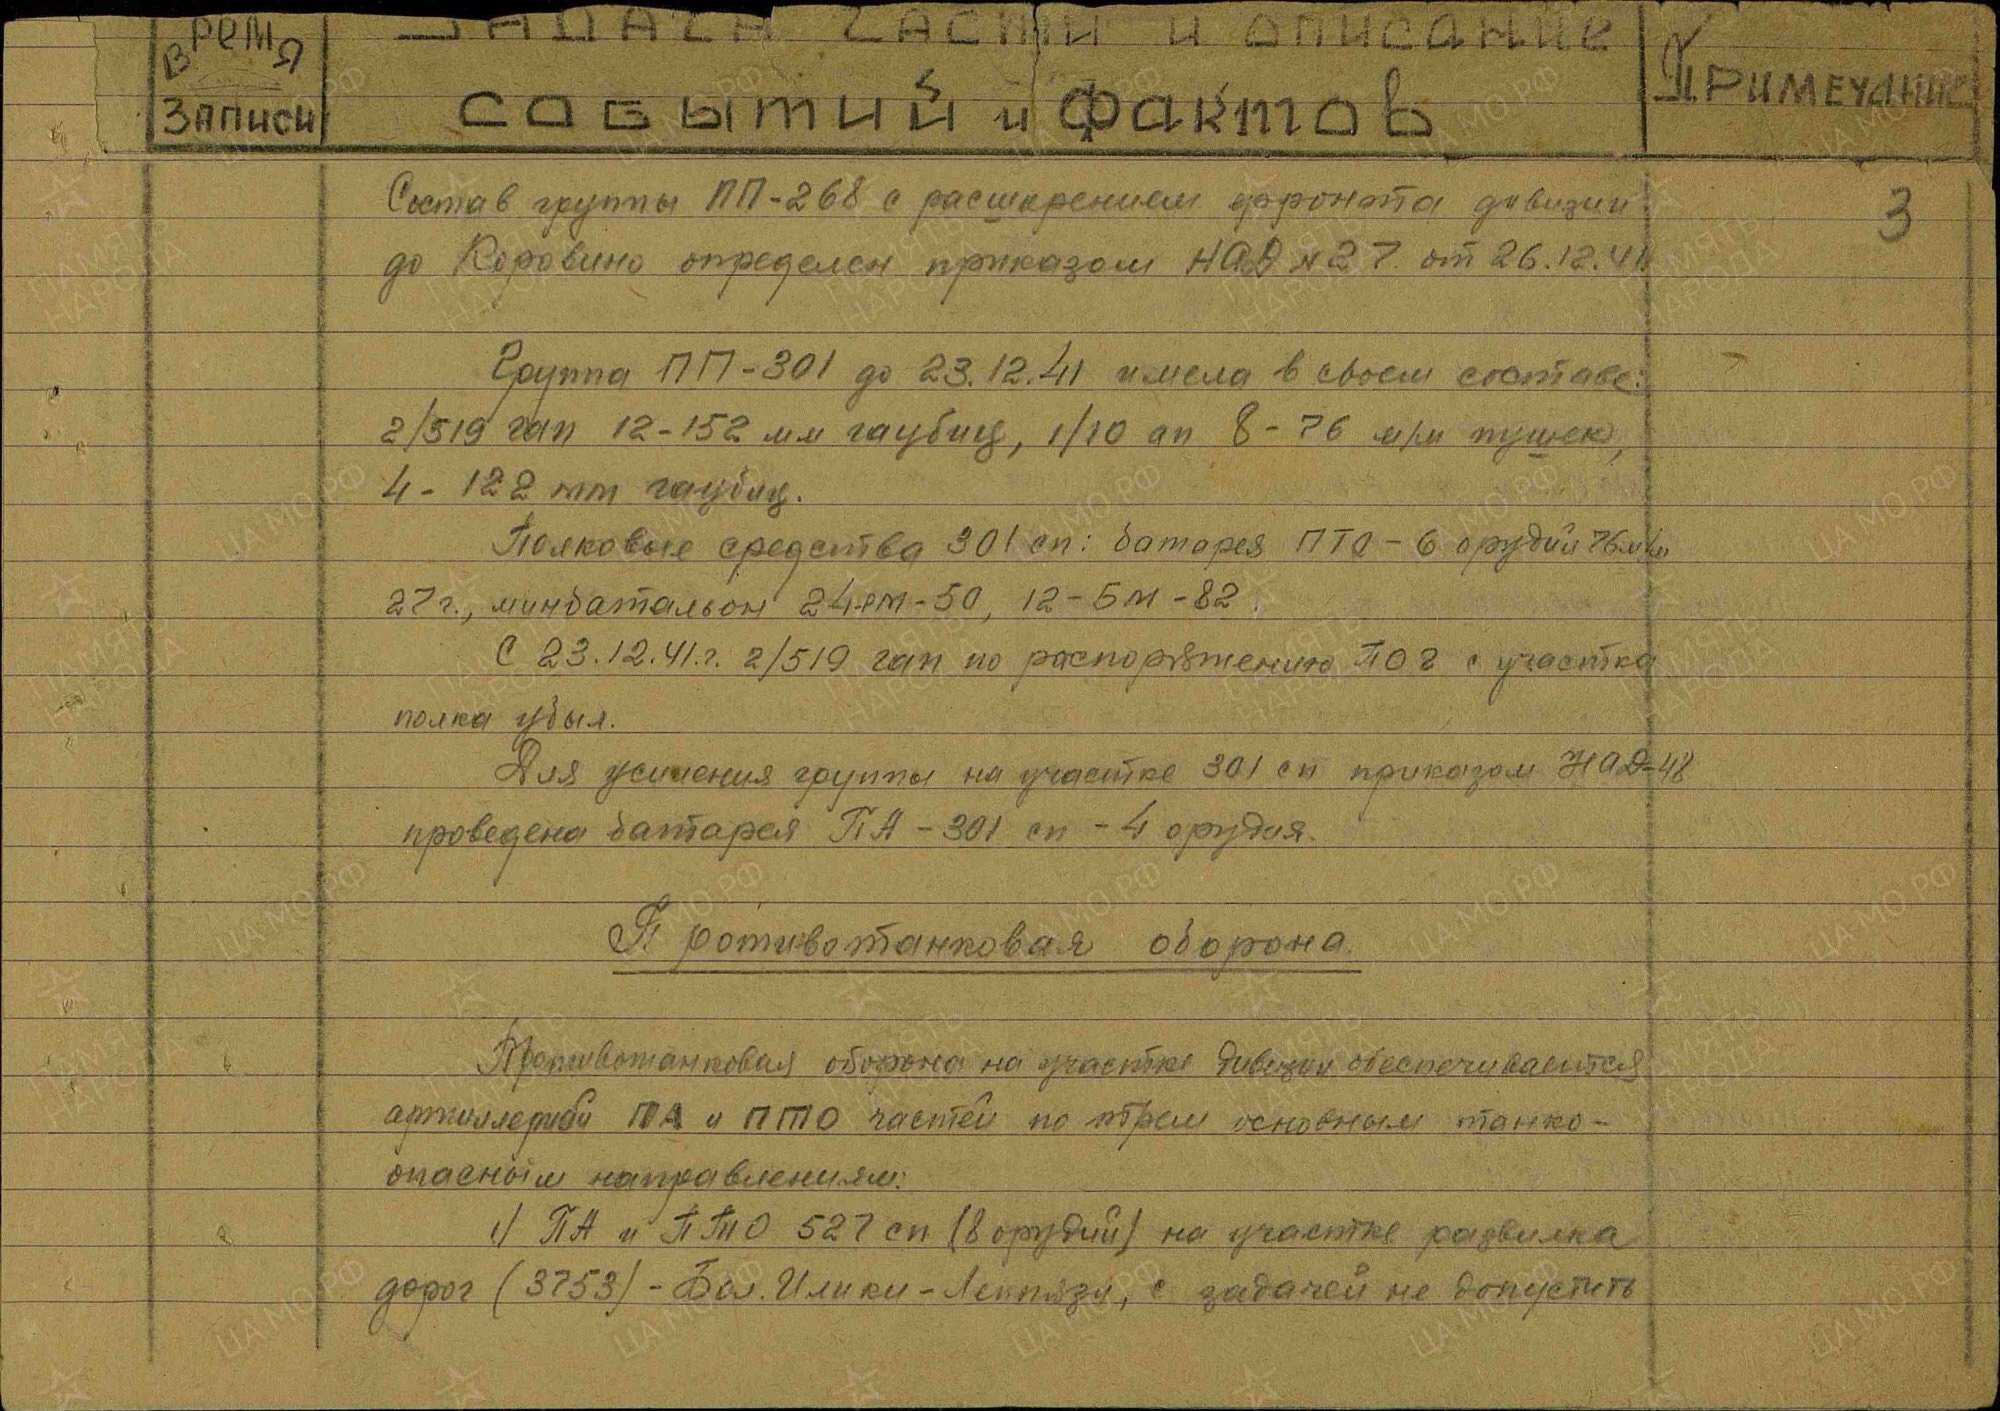 Время
Записи
Задача части и описание
событий и фактов
Примечание
3
Состав группы ПП-268 с расширением фронта дивизии
до Коровино определен приказом НАД №27 от 26.12.41
Группа ПП-301 до 23.12.41 имела в своем составе:
2/519 гап 12-152 мм гаубиц, 1/10 ап 8-76 м/м пушек,
4-122 mm гаубиц.
Полковые средства 301 сп: батарея ПТО - 6 орудий 76 м/м
27г., минбатальон 24-рм-50, 12-бм-82.
С 23.12.41.г. 2/519 гап по распоряжению ПОГ с участка
полка убыл.
Для усиления группы на участке 301 сп приказом НАД-48
проведена батарея ПА-301 сп - 4 орудия.
Противотанковая оборона.
Противотанковая оборона на участке дивизии обеспечивается
артиллерией ПА и ПТО частей по трем основным танко-
опасным направлениям:
1) ПА и ПТО 527 сп (8 орудий) на участке развилка
дорог (3753) - Бол. Илики - Леппязи, с задачей не допустить